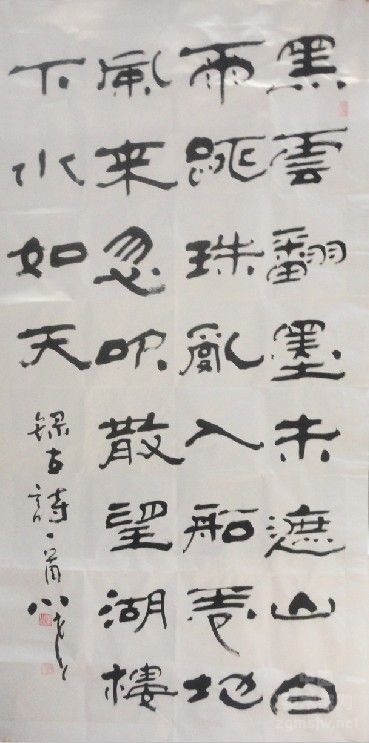 黑雲翻墨未遮山白
雨跳珠亂入船卷地
風来忽吹散望湖樓
下水如天
錄古詩一首